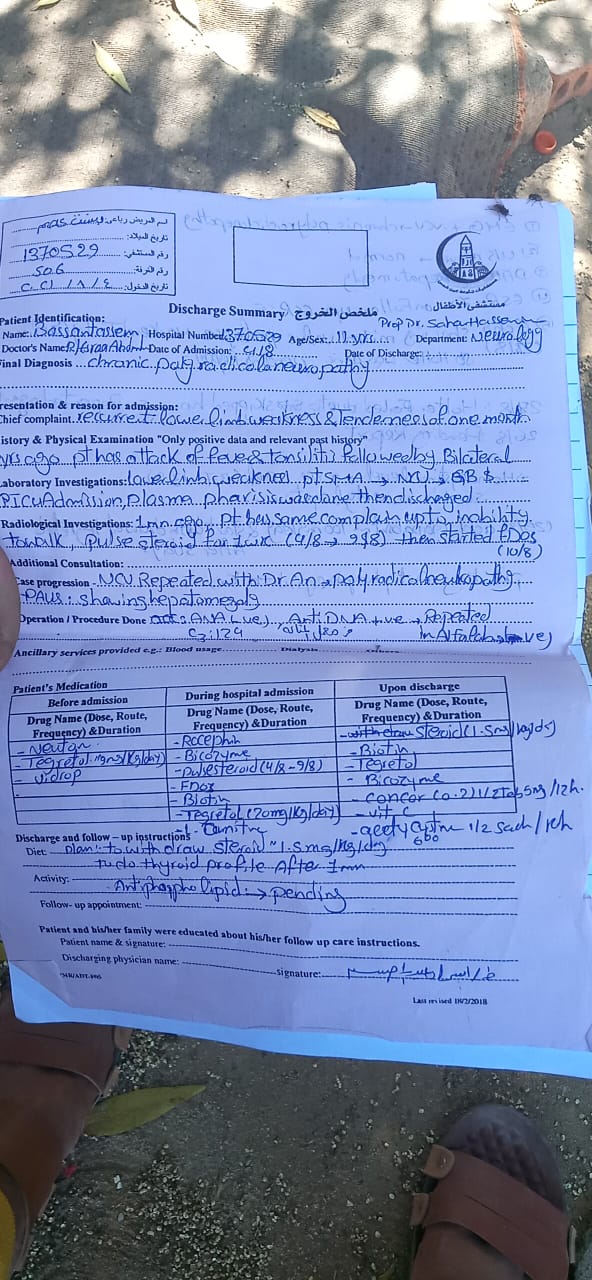 اسم المريض رباعي: بسنت
تاريخ الميلاد:
رقم المستشفى: 1370529
رقم الغرفة: 506
تاريخ الدخول:
مستشفى الأطفال
Discharge Summary ملخص الخروج
Prof Dr. Sahar Hassan
Patient Identification:
Name: Bassant assem Hospital Number 1370529 Age/Sex: 11 yrs Department: Neurology
Doctor's Name: Date of Admission: 4/8 Date of Discharge:
Final Diagnosis chronic poly radicolaneuropathy
Presentation & reason for admission:
Chief complaint. recurrent lower limb weakness & Tenderness of one month
History & Physical Examination "Only positive data and relevant past history"
yrs ago pt has attack of fever & tonsilitis followed by Bilateral
Laboratory Investigations: lower limb weakness pt SMA → NCV → GB $
PICU Admission, plasma pharisis was done then discharged
Radiological Investigations: 1 mn ago pt has same complain up to inability
to walk, pulse steroid for 1 wk (4/8 → 9/8) then started EDos
(10/8)
Additional Consultation:
Case progression - NCV Repeated with Dr. An → poly radicolneukopathy
- PAUS: showing hepatomegaly
Operation / Procedure Done ANA (-ve), Anti DNA +ve → Repeated
C3: 124 in Alfa lab (-ve)
Ancillary services provided e.g.: Blood usage Dialysis
Patient's Medication
Before admission During hospital admission Upon discharge
Drug Name (Dose, Route, Frequency) &Duration Drug Name (Dose, Route, Frequency) &Duration Drug Name (Dose, Route, Frequency) &Duration
- Tegretol - Rocephin - withdraw steroid (1.5mg/kg/ds)
- Vidrop - Bicozyme - Biotin
- pulse steroid (4/8 - 9/8) - Tegretol
- EDox - Bicozyme
- Biotin - Concor (0.2) 1/2 Tab 5mg /12h.
- Tegretol (20mg/kg/day) - vit C
- L-Carnitne - acetyl cystine 1/2 sach / 12h
600
Discharge and follow – up instructions
Diet: plan: to withdraw steroid "1.5 mg/kg/day
to do thyroid profile After 1mn
Activity: - Antiphospho lipid: → pending
Follow- up appointment:
Patient and his/her family were educated about his/her follow up care instructions.
Patient name & signature:
Discharging physician name: signature:
Last revised 18/2/2018